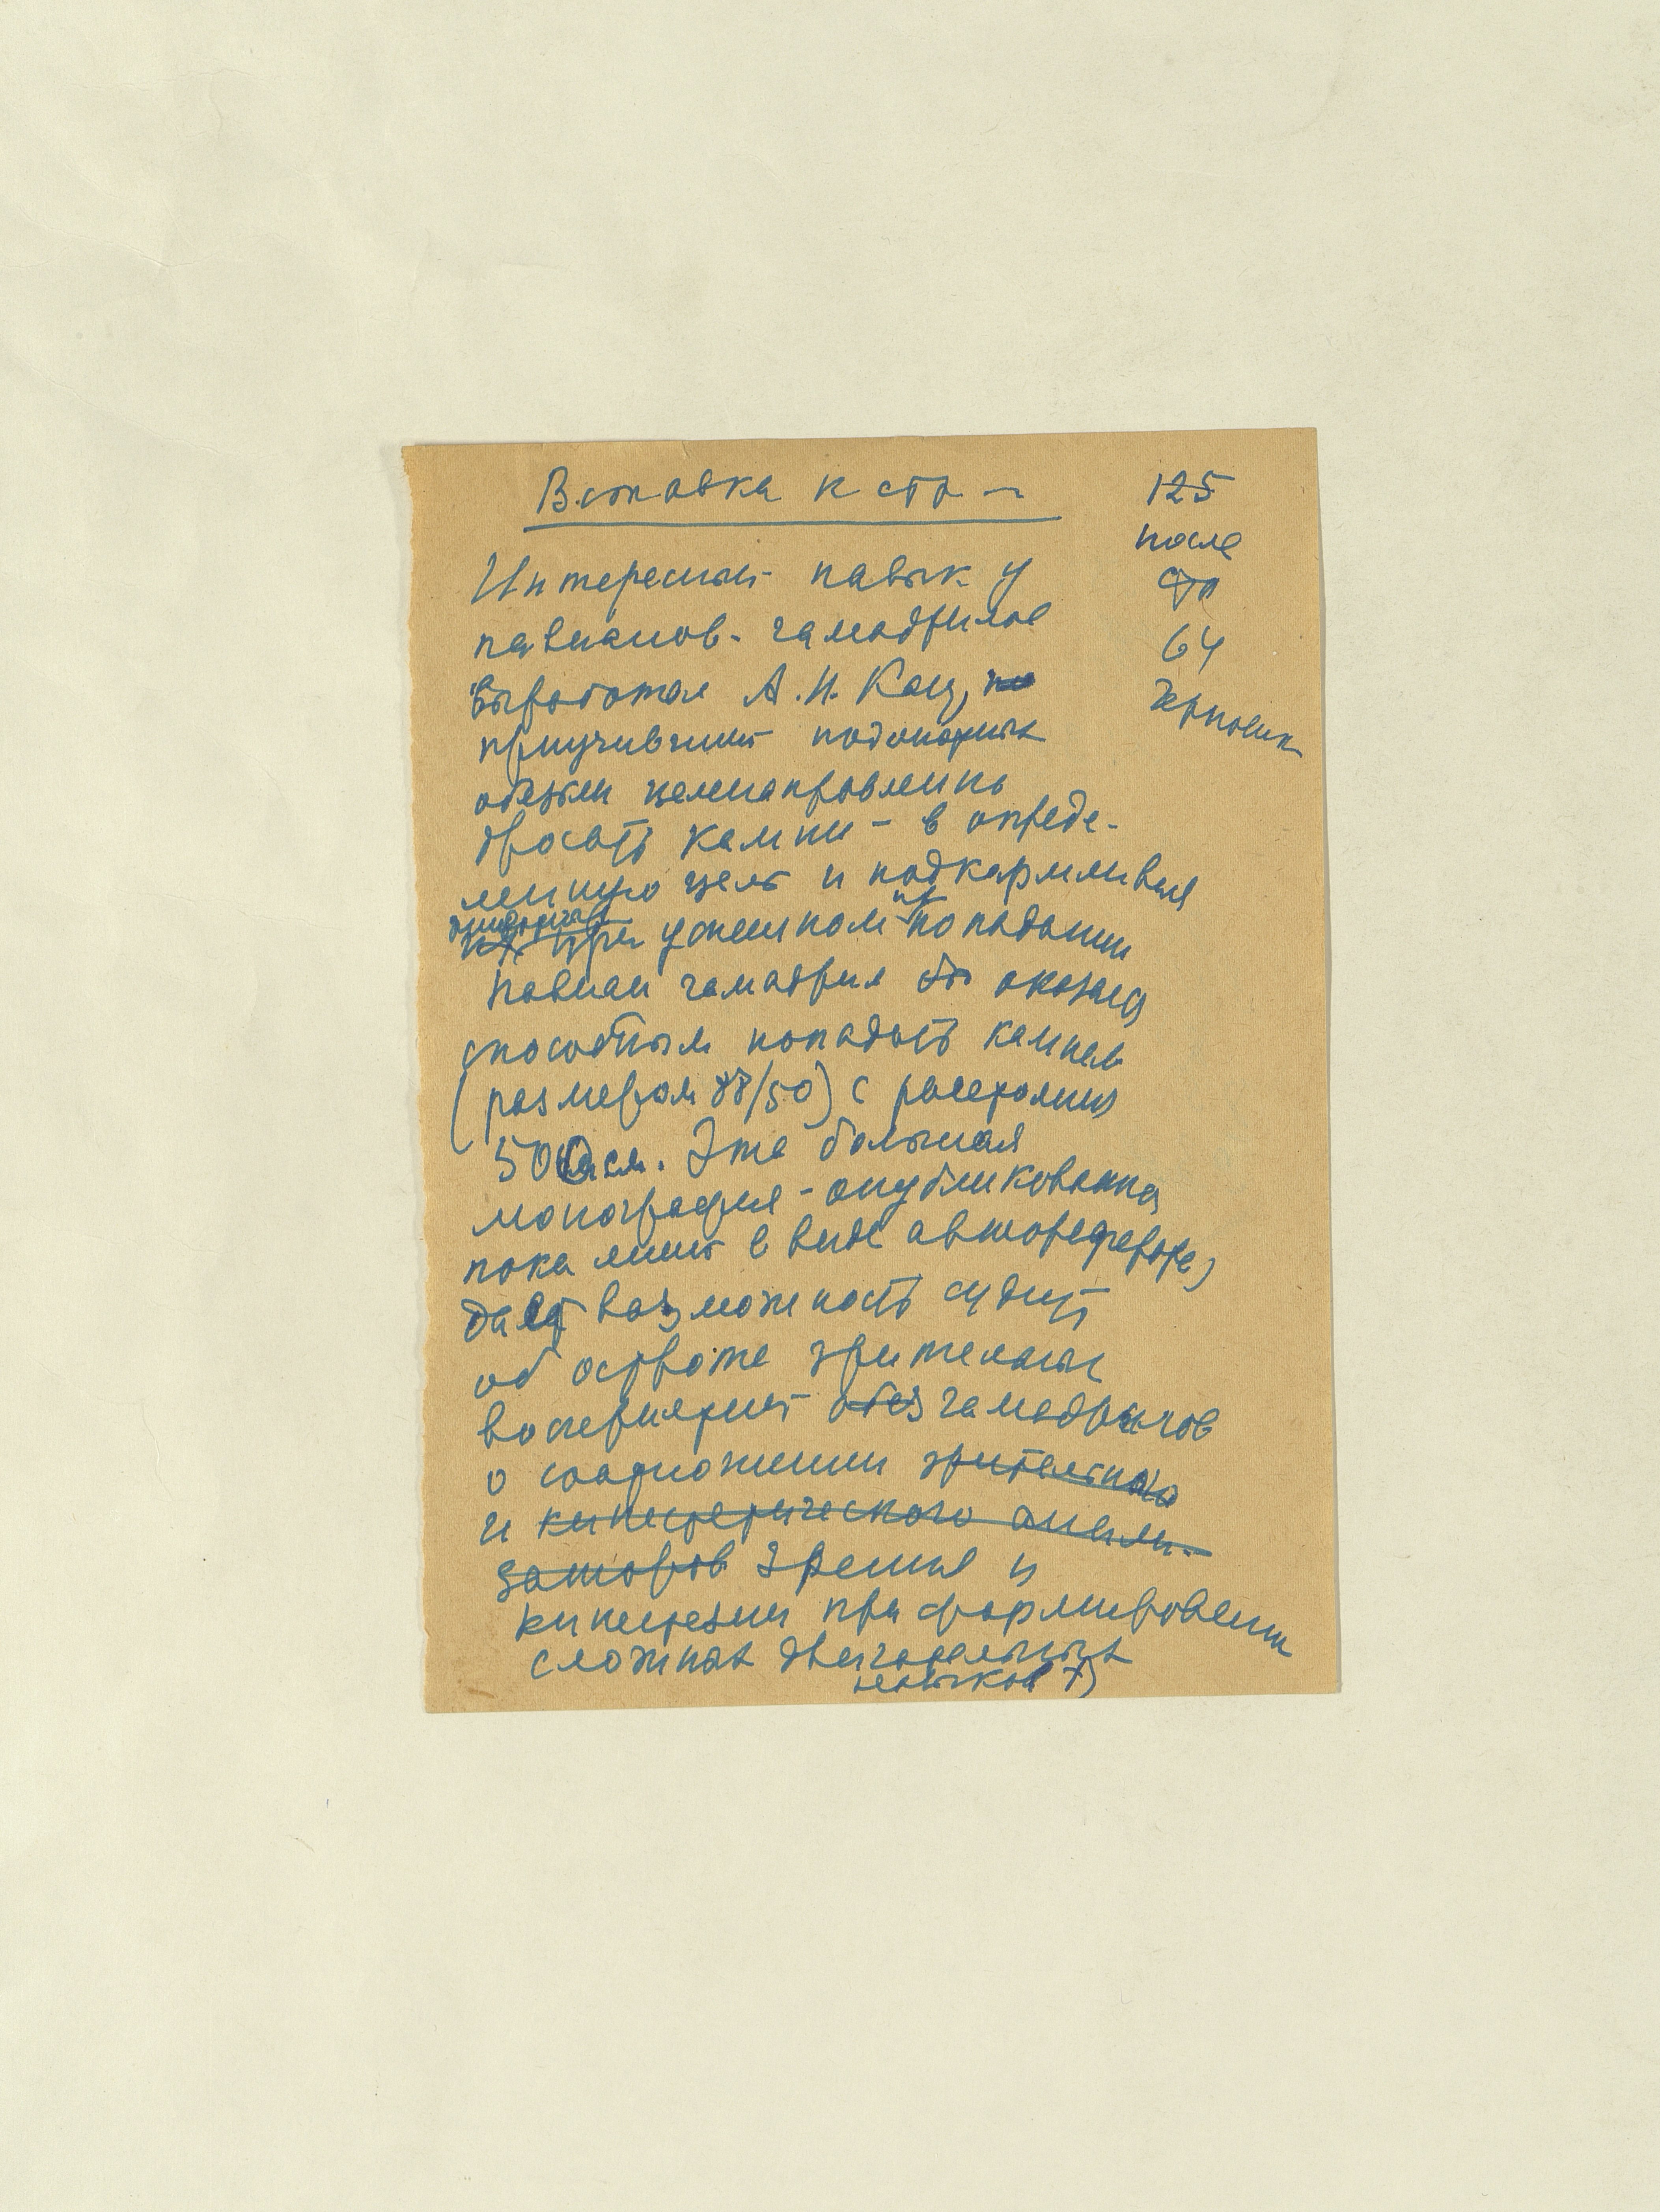 Вставка к стр —
125
после
стр
64
Черновик
Интересный навык у
павианов-гамадрилов
выработал А. И. Кац,
приучивший подопытных
обезьян целенаправленно
бросать камни — в опреде-
ленную цель и подкармливая
при успешном попадании
Павиан гамадрил оказался
способным попадать камнем
(размером 88/50) с расстояния
500 см. Эта большая
монография — опубликованная
пока лишь в виде автореферата,
дает возможность судить
об остроте зрительных
восприятий обез гамадрилов
о соотношении зрительного
и кинестетического анали-
заторов зрения и
кинестезии при формировании
сложных двигательных
навыков 7)